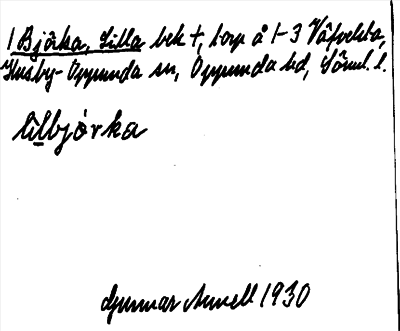 1 Björka, Lilla bek †, torp å 1-3 Väfvelsta,
Husby-Oppunda sn, Oppunda hd, Söml. l.
lìlbjórka
Gunnar Amnell 1930